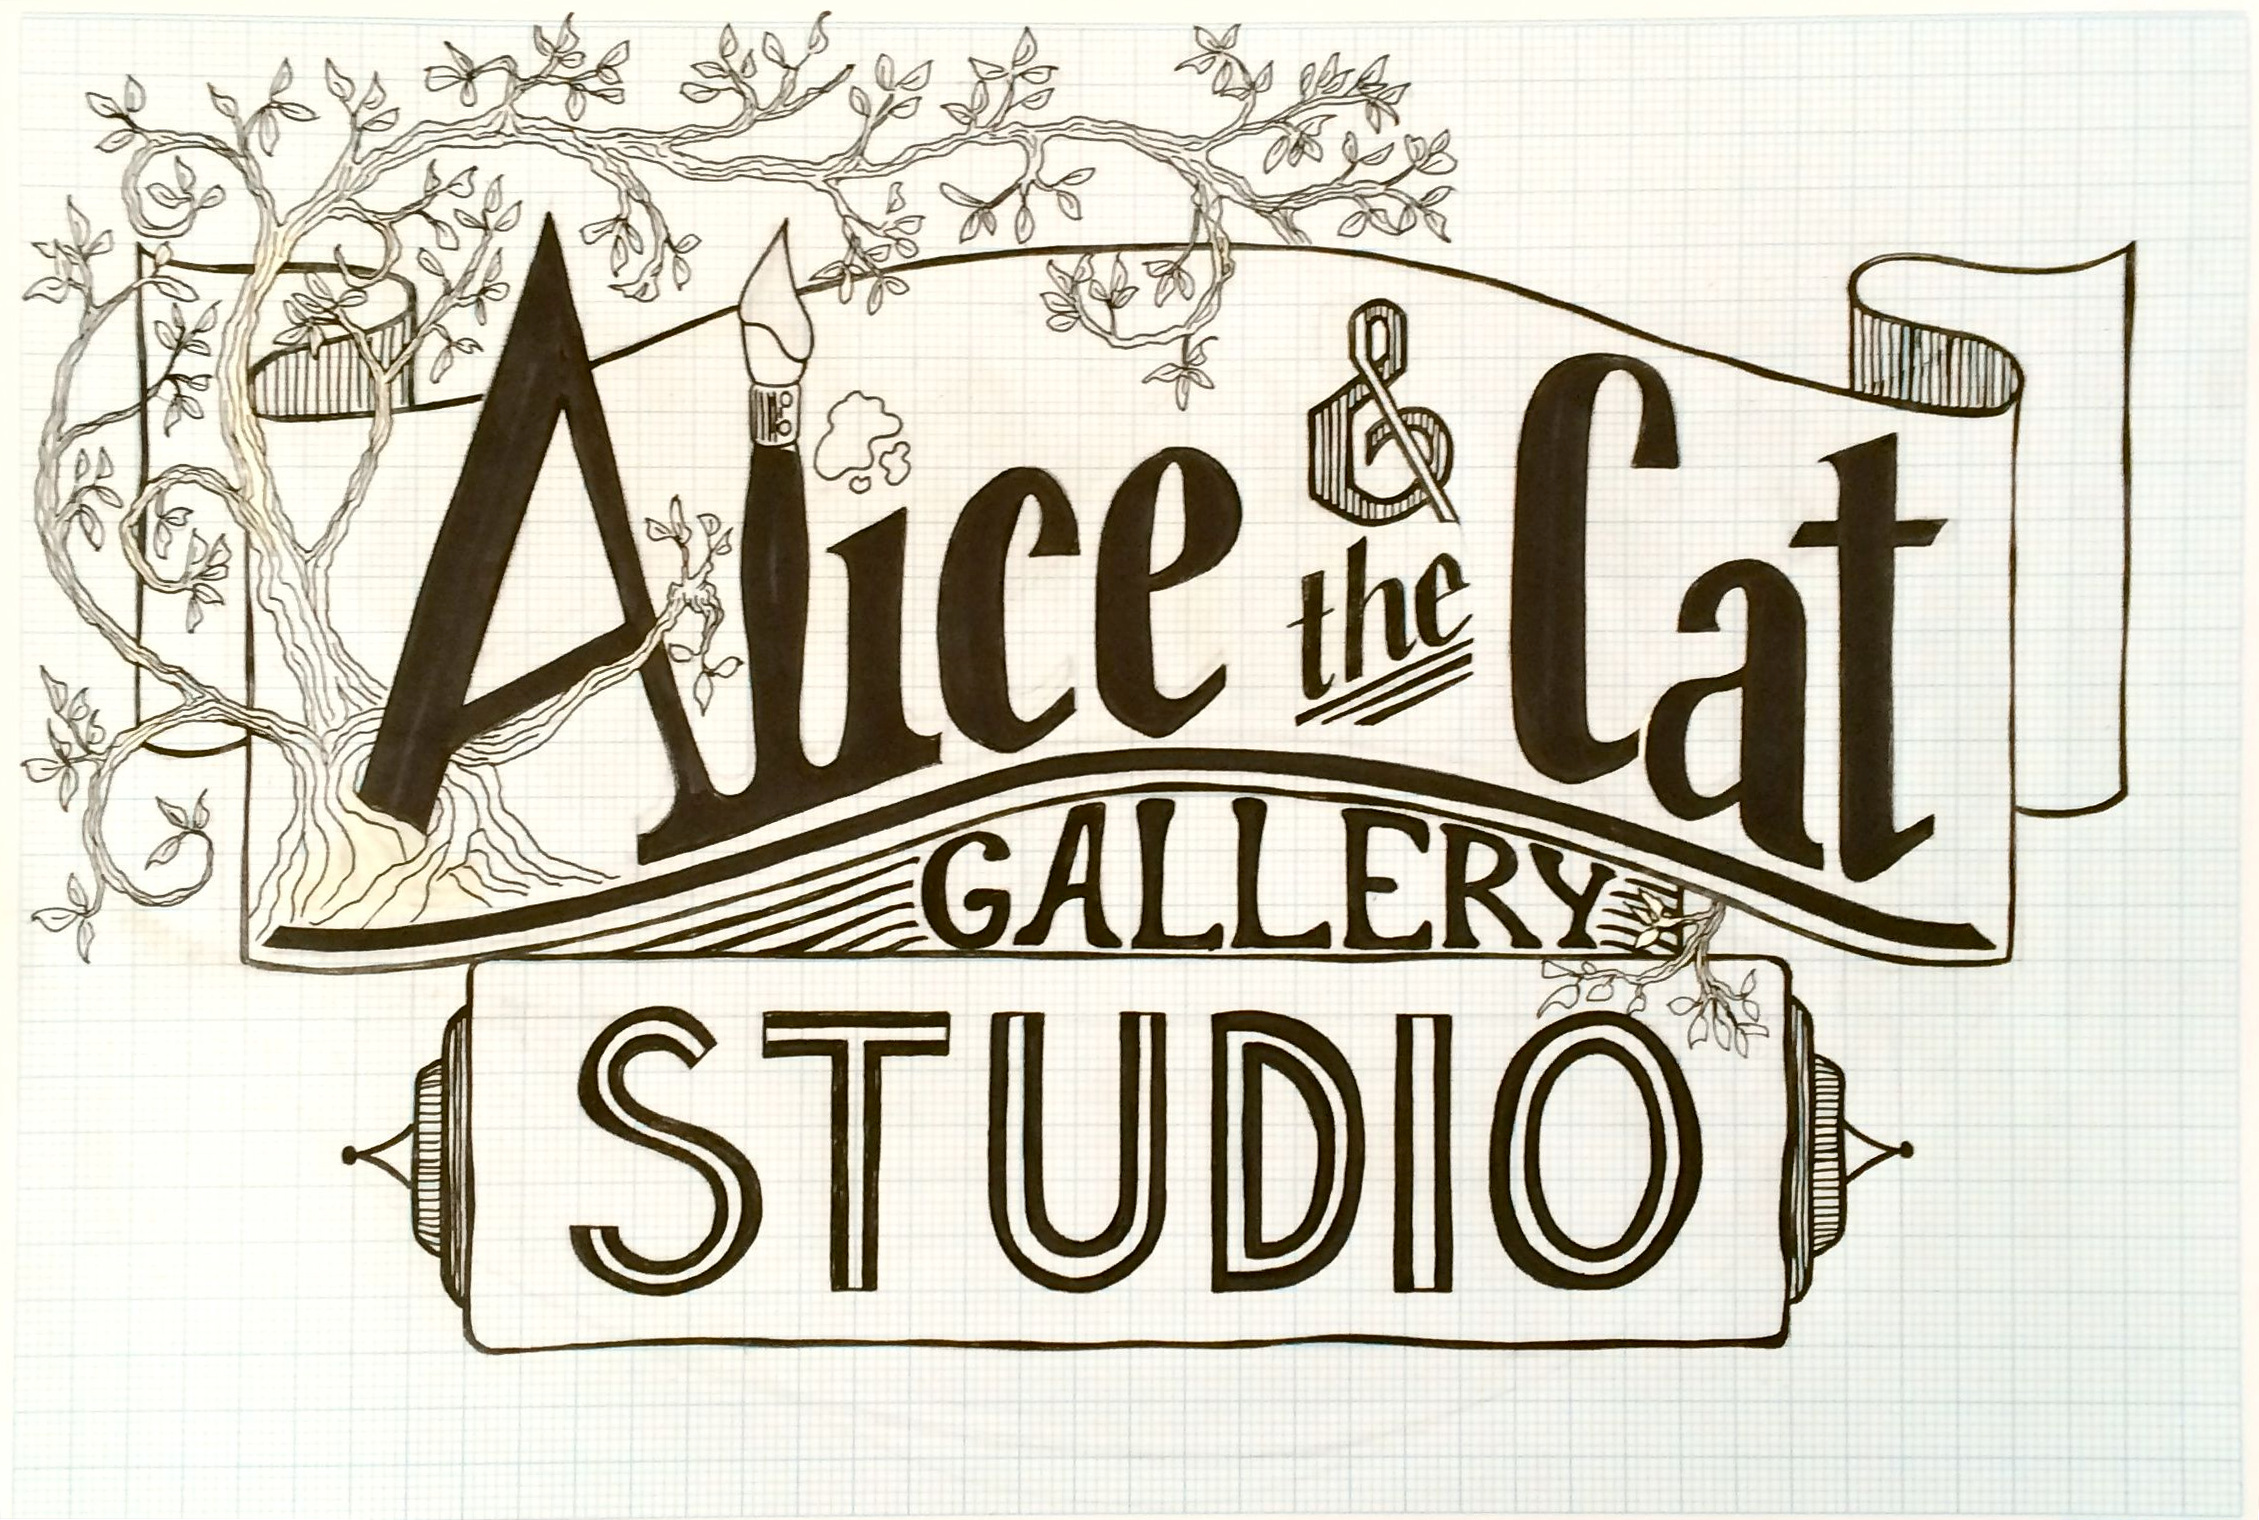 Alice & the Cat
GALLERY
STUDIO